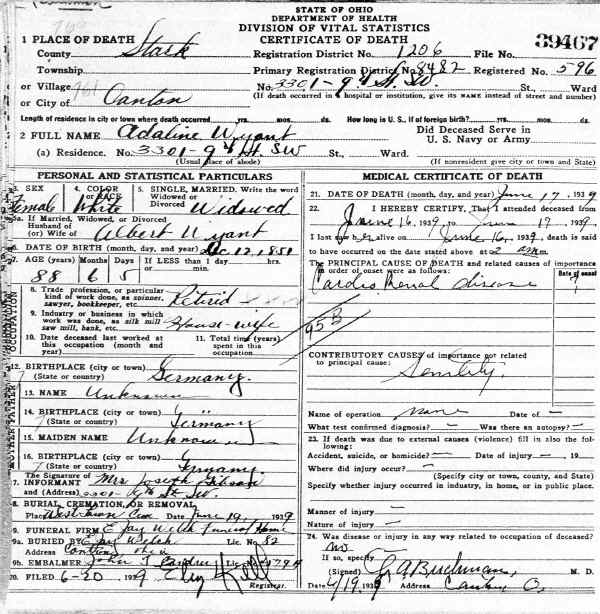 STATE OF OHIO
DEPARTMENT OF HEALTH
DIVISION OF VITAL STATISTICS
CERTIFICATE OF DEATH
1 PLACE OF DEATH
County Stark
Registration District No. 1206 File No. 39467
Township Primary Registration District No. 8482 Registered No. 596
or Village
No. 3301-9th St. SW. St., Ward
or City of Canton
(If death occurred in a hospital or institution, give its NAME instead of street and number)
Length of residence in city or town where death occurred yrs. mos. ds. How long in U. S., if of foreign birth? yrs. mos. ds.
2 FULL NAME Adaline Wyant
Did Deceased Serve in
U. S. Navy or Army
(a) Residence. No. 3301-9th St. SW St., Ward.
(Usual place of abode) (If nonresident give city or town and State)
PERSONAL AND STATISTICAL PARTICULARS
3. SEX Female
4. COLOR or RACE White
5. SINGLE, MARRIED, Write the word
Widowed or Divorced Widowed
5a. If Married, Widowed, or Divorced
Husband of
(or) Wife of Albert Wyant
6. DATE OF BIRTH (month, day, and year) Dec 12, 1851
7. AGE Years Months Days If LESS than 1 day hrs.
88 6 5 or min.
8. Trade, profession, or particular
kind of work done, as spinner,
sawyer, bookkeeper, etc. Retired
9. Industry or business in which
work was done, as silk mill
saw mill, bank, etc. House-wife
10. Date deceased last worked at
this occupation (month and
year)
11. Total time (years)
spent in this
occupation
OCCUPATION
12. BIRTHPLACE (city or town)
(State or country) Germany
13. NAME Unknown
14. BIRTHPLACE (city or town)
(State or country) Germany
15. MAIDEN NAME Unknown
16. BIRTHPLACE (city or town)
(State or country) Germany
The Signature of Mrs Joseph Gibson
17. INFORMANT
and (Address) 3301-9th St. SW.
18. BURIAL, CREMATION, OR REMOVAL
Place West Lawn Cem Date June 19, 1939
19. FUNERAL FIRM E Jay Welch Funeral Home
19a. BURIED BY E Jay Welch Lic. No. 82
Address Canton Ohio
19b. EMBALMER John Lic. No.
20. FILED 6-20 1939
Registrar.
MEDICAL CERTIFICATE OF DEATH
21. DATE OF DEATH (month, day, and year) June 17, 1939
22. I HEREBY CERTIFY, That I attended deceased from
June 16, 1939, to June 17, 1939.
I last saw alive on June 16, 1939, death is said
to have occurred on the date stated above at 2 m.
The PRINCIPAL CAUSE OF DEATH and related causes of importance
in order of onset were as follows: Date of onset
Cardio Renal disease ?
95B
CONTRIBUTORY CAUSES of importance not related
to principal cause:
Senility.
Name of operation none Date of —
What test confirmed diagnosis? — Was there an autopsy? —
23. If death was due to external causes (violence) fill in also the
following:
Accident, suicide, or homicide? — Date of injury —, 19
Where did injury occur? —
(Specify city or town, county, and State)
Specify whether injury occurred in industry, in home, or in public place.
Manner of injury —
Nature of injury —
24. Was disease or injury in any way related to occupation of deceased?
no
If so, specify
(Signed) M. D.
Date 6/19 1939 Address Canton O.